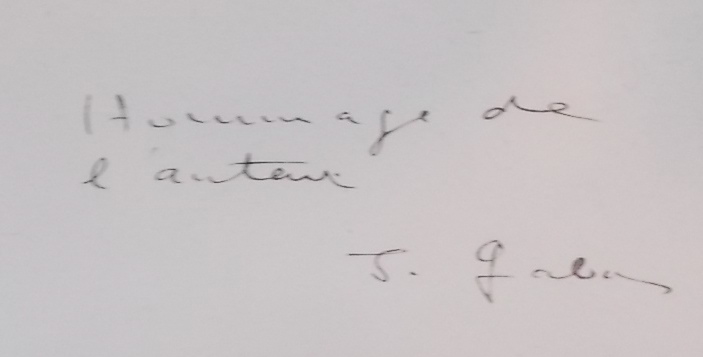 Hommage de
l'auteur
J.